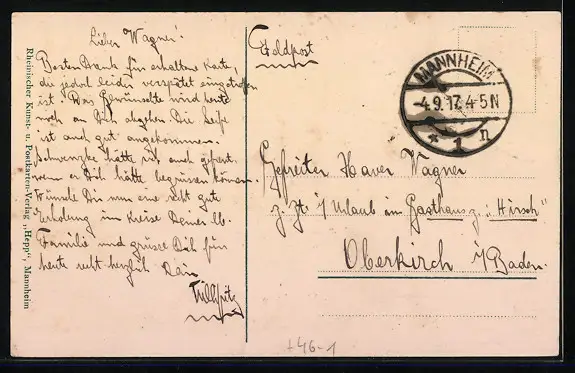 Lieber Wagner!
Besten Dank für erhaltene Karte,
die jedoch leider verspätet eingetroffen
ist. Das Gewünschte wird heute
noch an Dich abgehen. Die Seife
ist auch gut angekommen.
hätte ich auch gefreut,
wenn er Dich hätte begrüssen können.
Wünsche Dir nun eine recht gute
Erholung im Kreise Deiner lb.
Familie und grüsse Dich für
heute recht herzlich Dein
Rheinischer Kunst- u. Postkarten-Verlag „Hepp", Mannheim
Feldpost
MANNHEIM
4.9.17.4-5N
* 1 n
Gefreiter Xaver Wagner
z. Zt. i/Urlaub im Gasthaus z. „Hirsch"
Oberkirch i/Baden.
+46-1